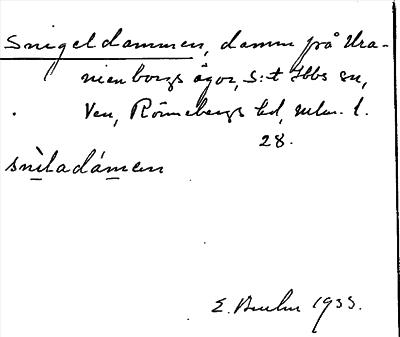 Snigeldammen, damm på Ura-
nienborgs ägor, S:t Ibbs sn,
Ven, Rönnebergs hd, Mlm. l.
28.
snìladámen
E. 1933.